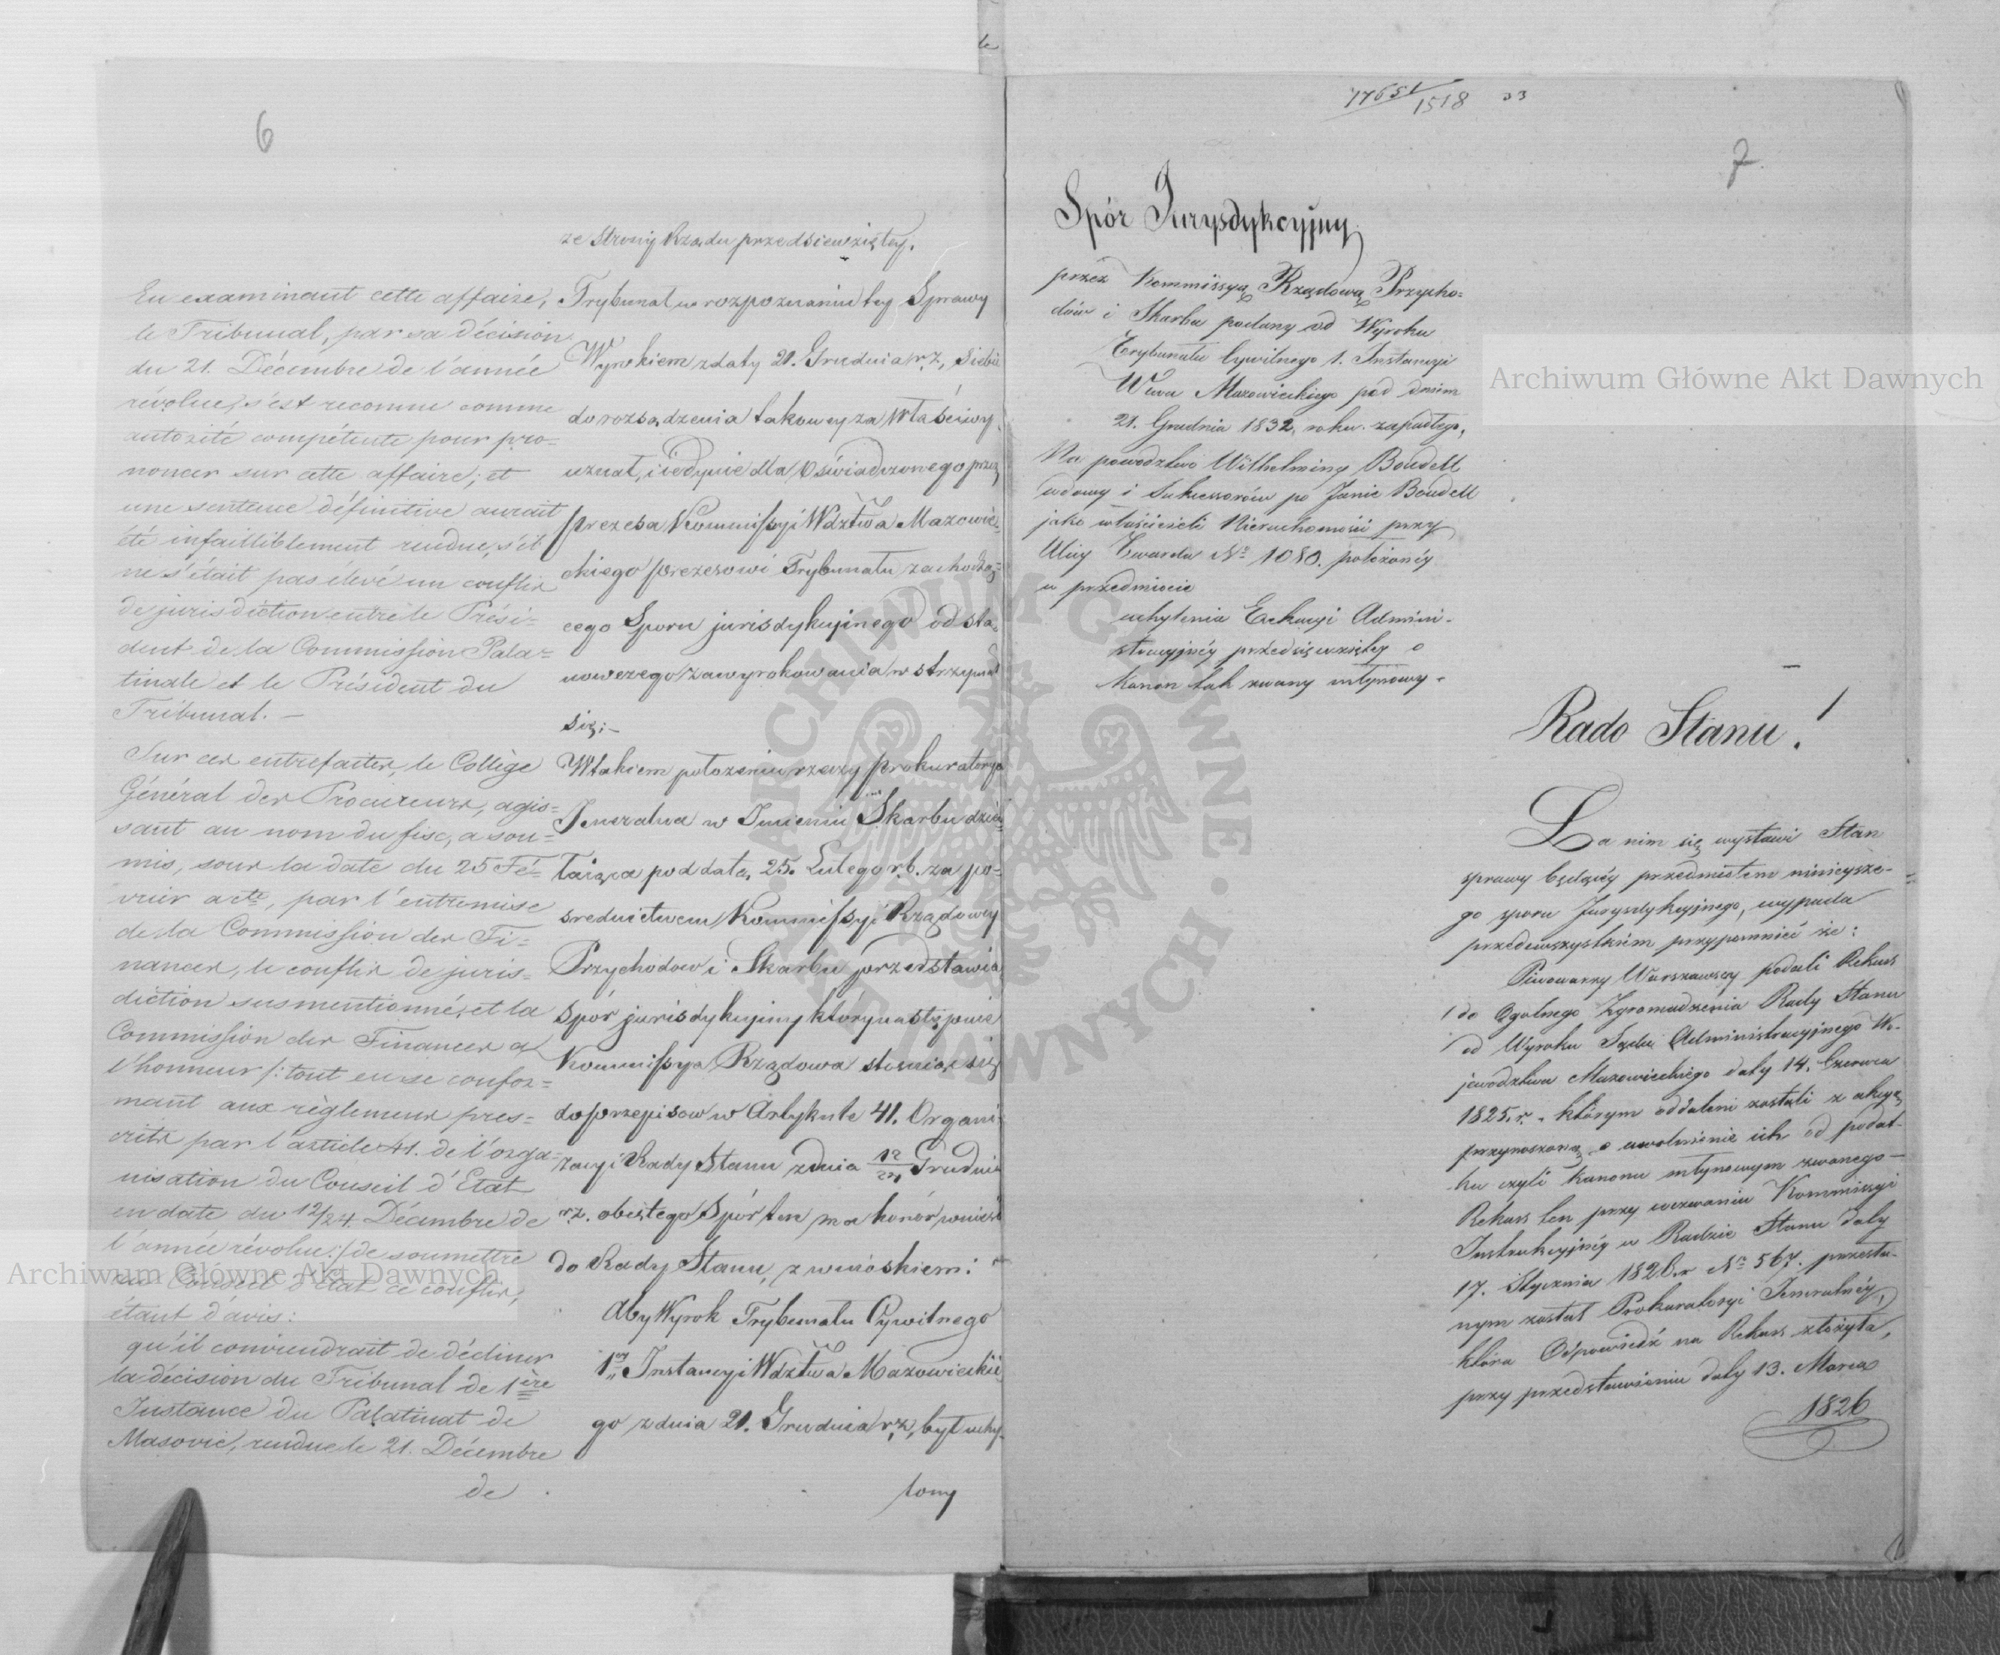 6
En examinant cette affaire,
le Tribunal, par sa décision
du 21. Décembre de l'année
révolue, s'est reconnu comme
autorité compétente pour pro-
noncer sur cette affaire; et
une sentence définitive aurait
été infailliblement rendue, s'il
ne s'était pas élevé un conflit
de jurisdiction entre le Prési-
dent de la Commission Pala-
tinale et le Président du
Tribunal. —
Sur ces entrefaites, le Collège
Général des Procureurs, agis-
sant au nom du fisc, a sou-
mis, sous la date du 25 Fé-
vrier a. cte, par l'entremise
de la Commission des Fi-
nances, le conflit de juris-
diction susmentionné, et la
Commission des Finances a
l'honneur /: tout en se confor-
mant aux règlemens pres-
crits par l'article 41. de l'orga-
nisation du Conseil d'Etat
en date du 12/24. Décembre de
l'année révolue :/ de soumettre
au Conseil d'Etat ce conflit,
étant d'avis:
qu'il conviendrait de décliner
la décision du Tribunal de 1ère
Instance du Palatinat de
Masovie, rendue le 21. Décembre
de
ze strony Rządu przedsiewziętey.
Trybunał w rozpoznaniu tey Sprawy
Wyrokiem z daty 21. Grudnia r. z, siebie
do rozsądzenia takowey za Właściwy
uznał, i iedynie dla Oświadczonego przez
Prezesa Kommissyi Wdztwa Mazowie-
ckiego Prezesowi Trybunału zachodzą-
cego Sporu jurisdykcyinego od sta-
nowczego zawyrokowania wstrzymał
się; —
W takiem położeniu rzeczy Prokuratorya
Jeneralna w Imieniu Skarbu dzia-
łaiąca pod datą 25. Lutego r. b. za po-
srednictwem Kommissyi Rządowey
Przychodow i Skarbu przedstawia
Spór jurisdykcyiny który nastepnie
Kommissya Rządowa stosuiąc się
do przepisow w Artykule 41. Organi-
zacyi Rady Stanu z dnia 12/24 Grudnia
r. z. obiętego Spór ten ma honór wnieść
do Rady Stanu, z wnioskiem:
Aby Wyrok Trybunału Cywilnego
1ey Instancyi Wdztwa Mazowieckie-
go z dnia 21. Grudnia r. z, był uchy-
lony
17651/1518 33
7.
Spór Jurysdykcyjny
przez Kommissyą Rządową Przycho-
dów i Skarbu podany od Wyroku
Trybunału Cywilnego 1. Instancyi
Wdwa Mazowieckiego pod dniem
21. Grudnia 1832, roku. zapadłego,
Na powództwo Wilhelminy Boudell
wdowy i Sukcessorów po Janie Boudell
jako właścicieli Nieruchomości przy
Ulicy Twarda No 1080. położonéy
w przedmiocie
uchylenia Exekucyi Admini-
stracyjnéy przedsięwziętey o
Kanon tak zwany młynowy.
Rado Stanu!
Za nim się wystawi Stan
sprawy będącéy przedmiotem ninieysze-
go sporu Jurysdykcyjnego, wypada
przedewszystkiem przypomnieć że:
Piwowarzy Warszawscy podali Rekurs
do Ogólnego Zgromadzenia Rady Stanu
od Wyroku Sądu Administracyjnego Wo-
jewództwa Mazowieckiego daty 14. Czerwca
1825. r. którym oddaleni zostali z akcyą
przynoszoną o uwolnienie ich od podat-
ku czyli kanonu młynowym zwanego —
Rekurs ten przy wezwaniu Kommissyi
Instrukcyjnéy w Radzie Stanu daty
17. Stycznia 1826. r. No 567. przesła-
nym został Prokuratoryi Jeneralnéy,
która Odpowiedź na Rekurs złożyła,
przy przedstawieniu daty 13. Marca
1826
Archiwum Główne Akt Dawnych
Archiwum Główne Akt Dawnych
ARCHIWUM GŁÓWNE AKT DAWNYCH